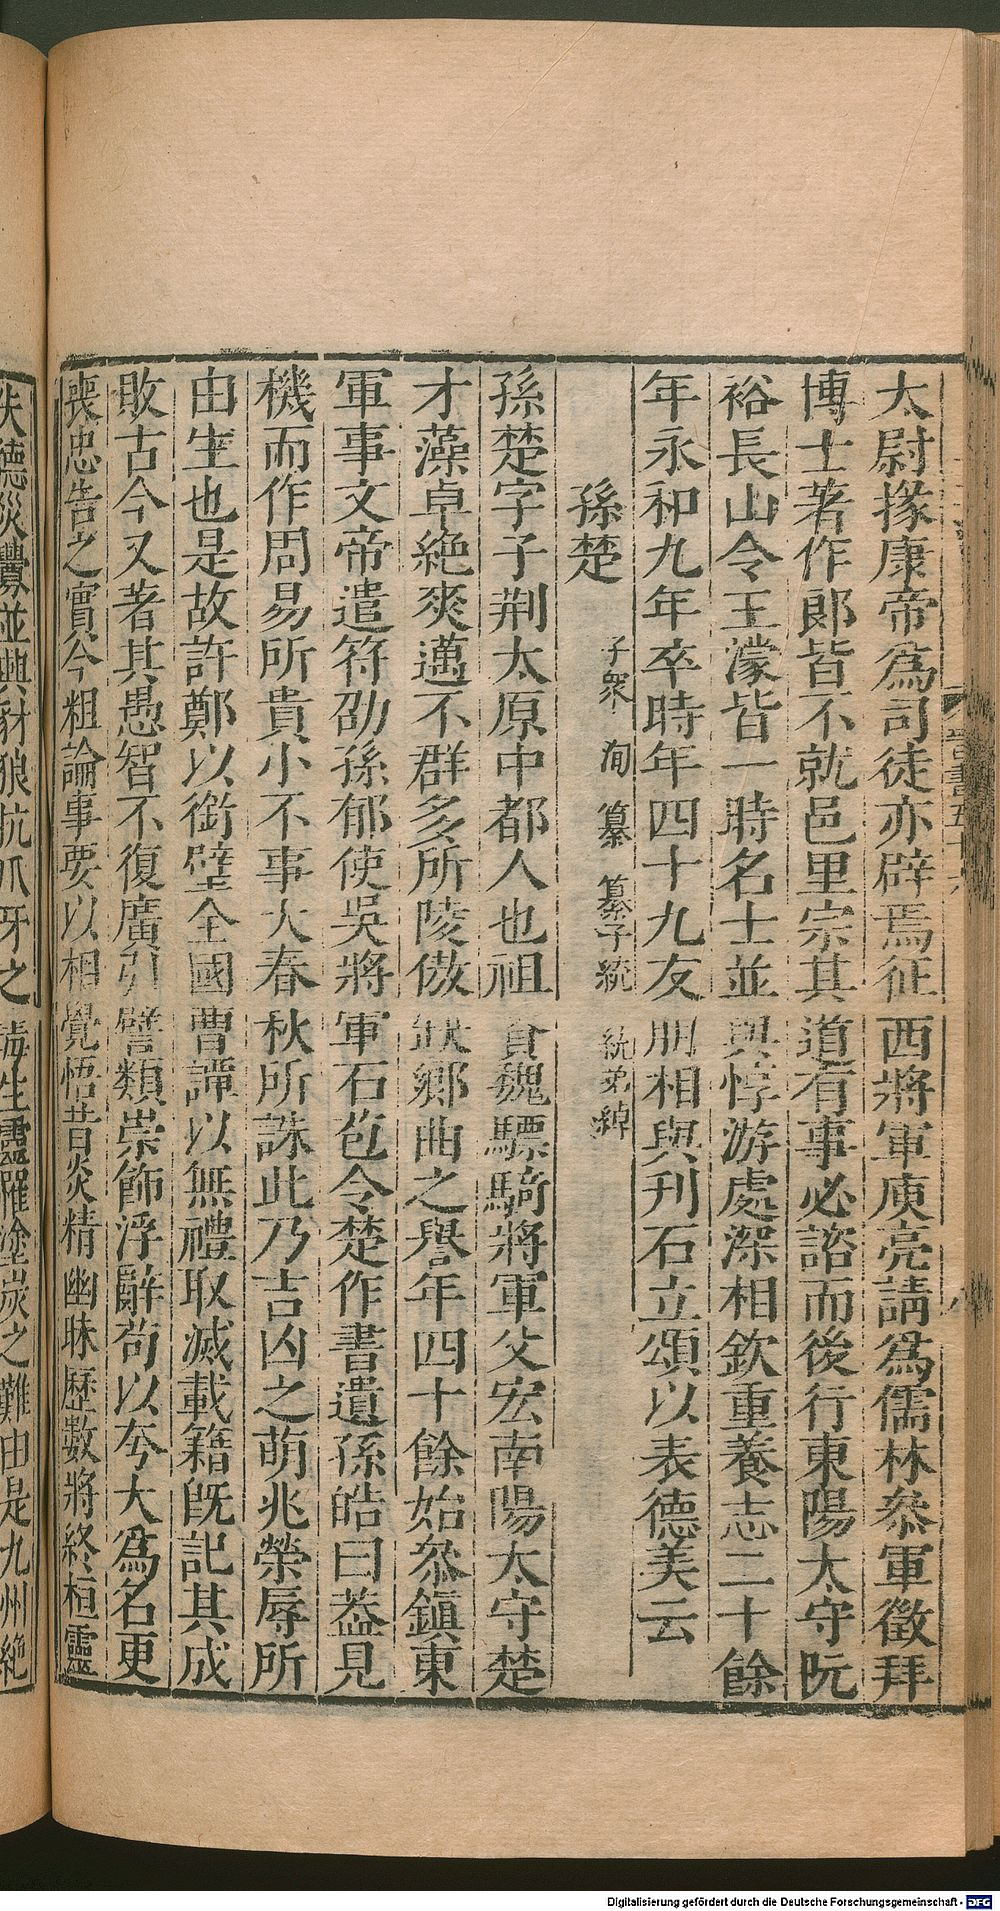 太尉掾康帝爲司徒亦辟焉征西將軍庾亮請爲儒林叅軍徵拜
博士著作郎皆不就邑里宗其道有事必諮而後行東陽太守阮
裕長山令王濛皆一時名士並與惇游處深相欽重養志二十餘
年永和九年卒時年四十九友朋相與刊石立頌以表德美云
孫楚 子衆 洵 纂 纂子統 統弟綽
孫楚字子荆太原中都人也祖資魏驃騎將軍父宏南陽太守楚
才藻卓絶爽邁不群多所陵傲缺鄉曲之譽年四十餘始叅鎮東
軍事文帝遣符劭孫郁使吳將軍石苞令楚作書遺孫皓曰葢見
機而作周易所貴小不事大春秋所誅此乃吉凶之萌兆榮辱所
由生也是故許鄭以銜璧全國曹譚以無禮取滅載籍旣記其成
敗古今又著其愚智不復廣引譬類崇飾浮辭苟以夸大爲名更
喪忠告之實今粗論事要以相覺悟昔炎精幽昧歷數將終桓靈
失德災釁並興豺狼抗爪牙之毒生靈罹塗炭之難由是九州絶
Digitalisierung gefördert durch die Deutsche Forschungsgemeinschaft - DFG